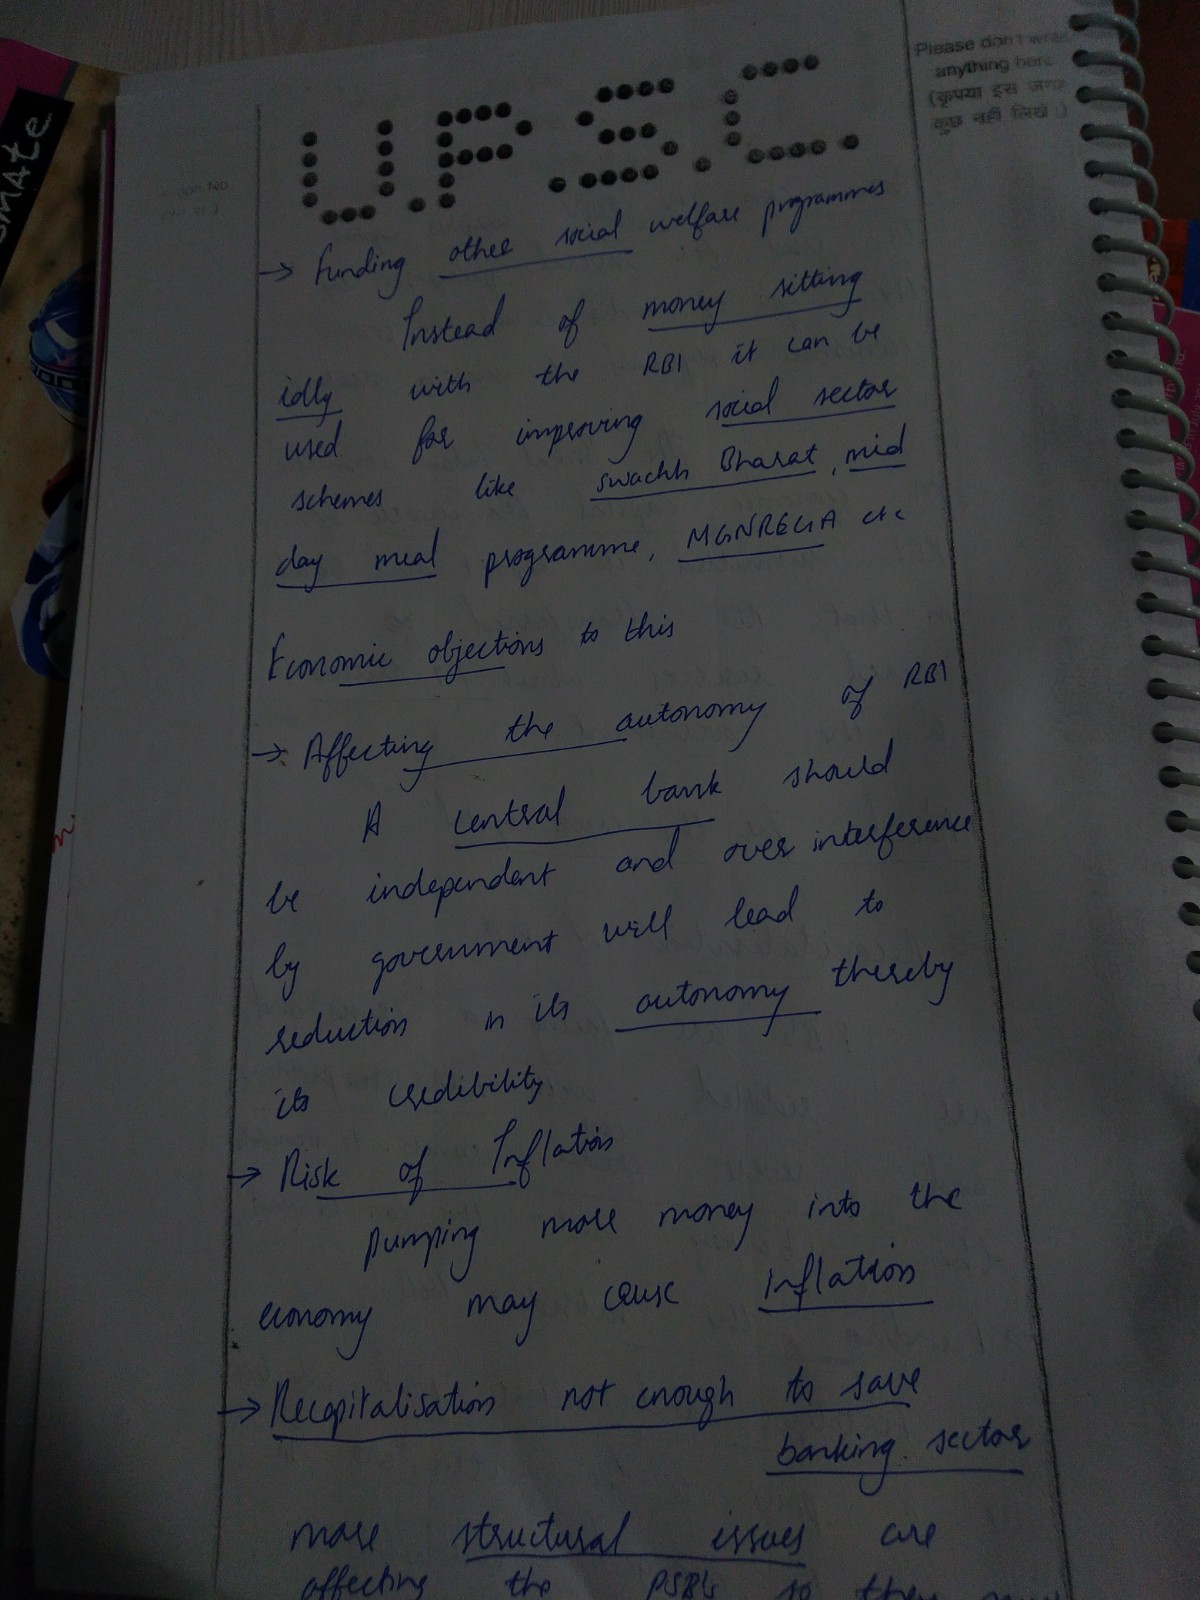 U.P.S.C.
Please don't write
anything here
(कृपया इस जगह
कुछ नहीं लिखें)
→ Funding other social welfare programmes
Instead of money sitting
idly with the RBI it can be
used for improving social sector
schemes like Swachh Bharat, mid
day meal programme, MGNREGA etc
Economic objections to this
→ Affecting the autonomy of RBI
A central bank should
be independent and over interference
by government will lead to
reduction in its autonomy thereby
its credibility
→ Risk of Inflation
Pumping more money into the
economy may cause inflation
→ Recapitalisation not enough to save
banking sector
more structural issues are
affecting the PSBs so they